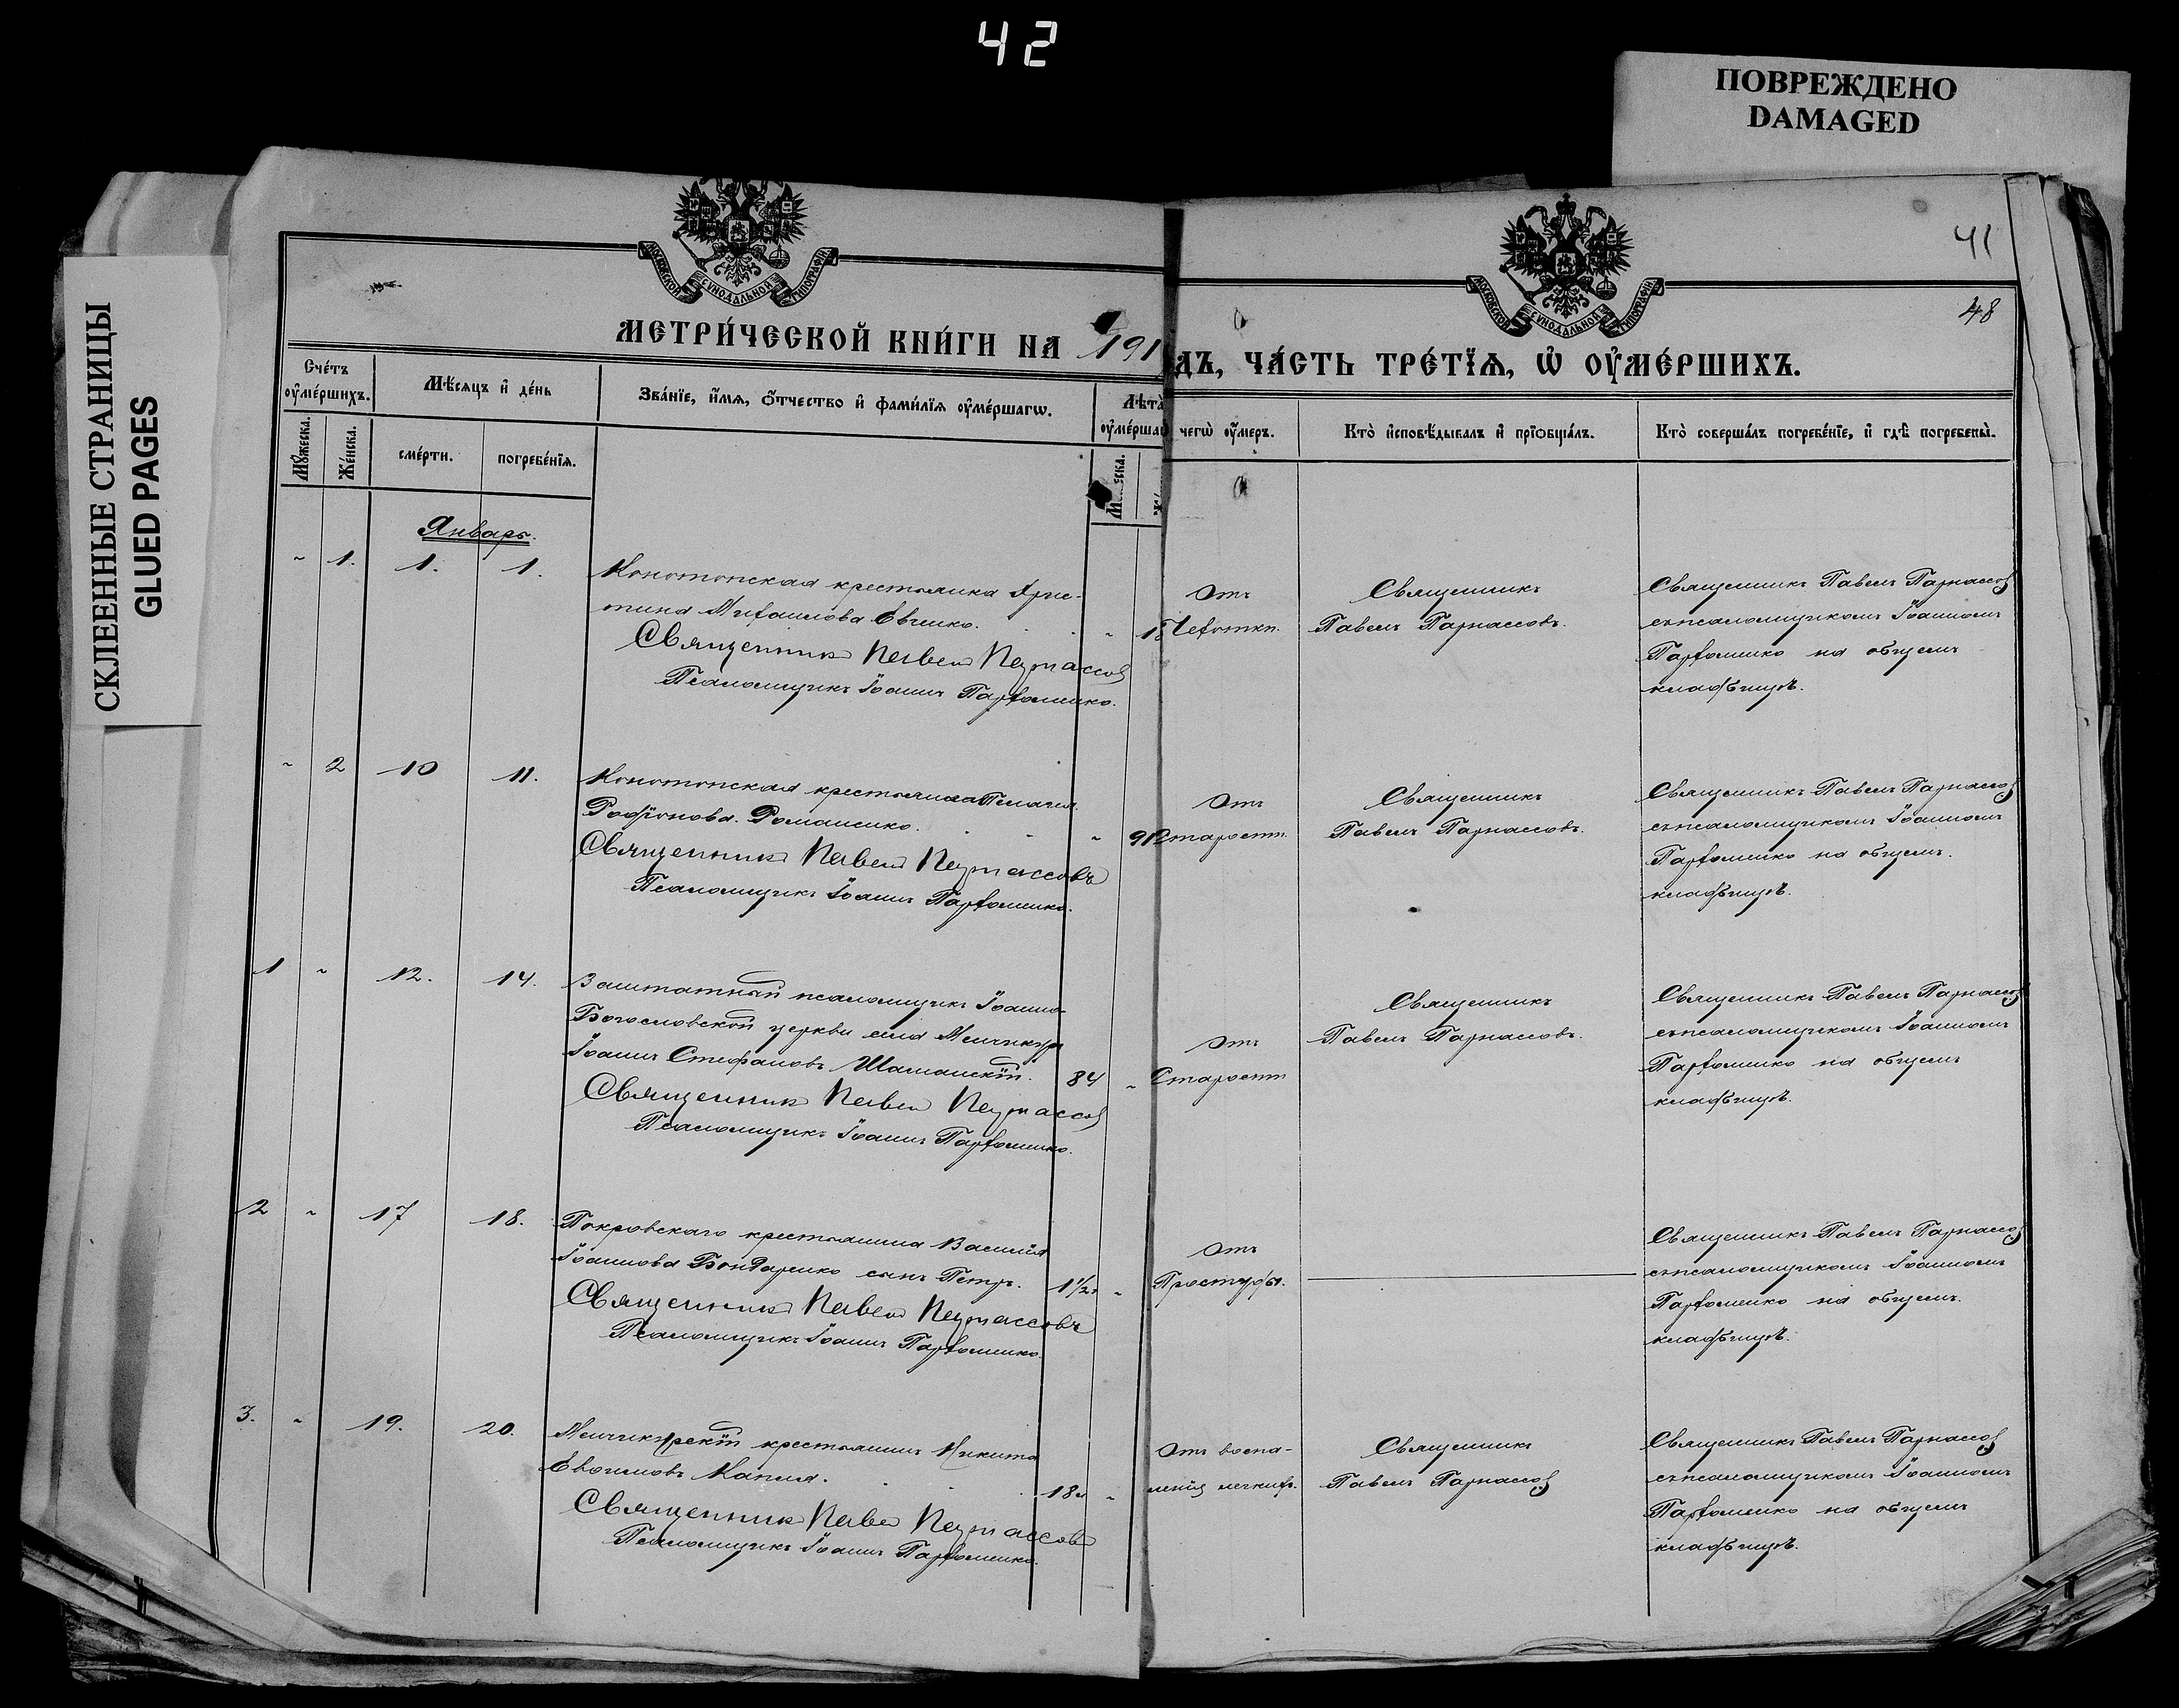 42
ПОВРЕЖДЕНО
DAMAGED
СКЛЕЕННЫЕ СТРАНИЦЫ
GLUED PAGES
МОСКОВСКОЙ СѴНОДАЛЬНОЙ ТИПОГРАФІИ
МОСКОВСКОЙ СѴНОДАЛЬНОЙ ТИПОГРАФІИ
41
48
МЕТРИ́ЧЕСКОЙ КНИ́ГИ НА 191
ДЪ, ЧА́СТЬ ТРЕ́ТЇѦ, Ѡ҆ ОУ҆МЕ́РШИХЪ.
Сче́тъ оу҆ме́ршихъ.
Мѣ́сяцъ и҆ де́нь
Зва́нїе, и҆́мя, ѻ҆́тчество и҆ фами́лїя оу҆ме́ршагѡ.
Лѣта̀ оу҆ме́ршаг
чегѡ̀ оу҆́меръ.
Кто̀ и҆сповѣ́дывалъ и҆ прїѡбща́лъ.
Кто̀ соверша́лъ погребе́нїе, и҆ гдѣ̀ погребены̀.
Мꙋ́жеска.
Же́нска.
сме́рти.
погребе́нїя.
Январь.
~ 1. 1. 1. Конотопская крестьянка Хрис-
тина Михаилова Евченко. ~
Священникъ Павелъ Парнассов
Псаломщикъ Іоаннъ Пархоменко.
Отъ
Чехотки.
Священникъ
Павелъ Парнассовъ.
Священникъ Павелъ Парнассов
съ псаломщикомъ Іоанномъ
Пархоменко на общемъ
кладбищѣ.
~ 2 10 11. Конотопская крестьянка Пелагія
Родіонова Романенко. ~ 91
Священникъ Павелъ Парнассовъ
Псаломщикъ Іоаннъ Пархоменко.
Отъ
Старости.
Священникъ
Павелъ Парнассовъ.
Священникъ Павелъ Парнассов
съ псаломщикомъ Іоанномъ
Пархоменко на общемъ.
кладбищѣ.
1 ~ 12. 14. Заштатный псаломщикъ Іоанно-
Богословской церкви села Менчикур
Іоаннъ Стефановъ Шаманскій. 84 ~
Священникъ Павелъ Парнассов
Псаломщикъ Іоаннъ Пархоменко.
Отъ
Старости
Священникъ
Павелъ Парнассовъ.
Священникъ Павелъ Парнассов
съ псаломщикомъ Іоанномъ
Пархоменко на общемъ
кладбищѣ.
2 ~ 17 18. Покровскаго крестьянина Василія
Іоаннова Бондаренко сынъ Петръ. 1½ ~
Священникъ Павелъ Парнассовъ
Псаломщикъ Іоаннъ Пархоменко.
Отъ
Простуды.
Священникъ Павелъ Парнассов
съ псаломщикомъ Іоанномъ
Пархоменко на общемъ.
кладбищѣ.
3. ~ 19. 20. Менчикурскій крестьянинъ Никита
Евѳимовъ Капля. 18 ~
Священникъ Павелъ Парнассовъ
Псаломщикъ Іоаннъ Пархоменко.
Отъ воспа-
ленія легкихъ.
Священникъ
Павелъ Парнассов
Священникъ Павелъ Парнассов
съ псаломщикомъ Іоанномъ
Пархоменко на общемъ
кладбищѣ.